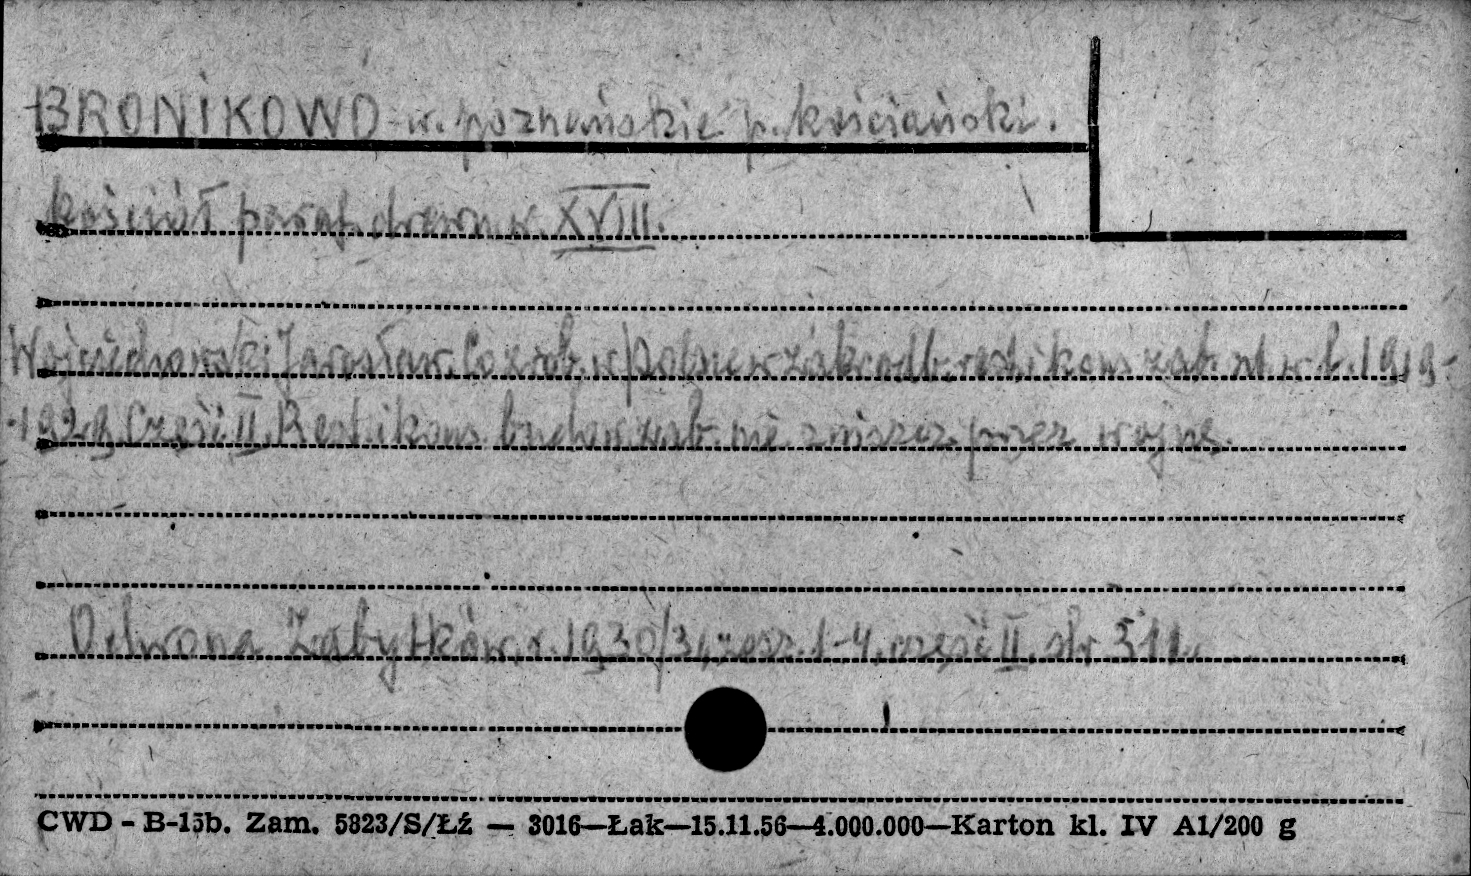 BRONIKOWO - w. poznańskie p. kościański.
kościół paraf. drewn. w. XVIII.
Wojciechowski Jarosław. Co zrob. w Polsce w zakr. odb. rest. i kons. zab. szt. w l. 1919-
-1929 Część II Rest. i kons. budow. zab. nie zniszcz. przez wojnę.
Ochrona Zabytków. r. 1930/31, zesz. 1-4. część II. str 311.
CWD - B-15b. Zam. 5823/S/Łź — 3016—Łak—15.11.56—4.000.000—Karton kl. IV A1/200 g